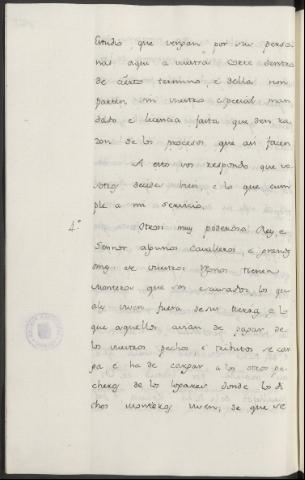 Estudio, que vengan por sus perso
nas aqui a vuestra corte dentro
de cierto termino, e della non
partan sin vuestro especial man
dado e licencia fasta que den ra
zon de los procesos que asi facen
A esto vos respondo que vo
sotros decides bien, e lo que cum
ple a mi servicio.
4.º Otrosi muy poderoso Rey, e
Sennor algunos cavalleros e grandes
omes de vuestros Regnos tienen
monteros que son escusados, los qua
les viven fuera de su tierra, e lo
que aquellos avian de pagar de
los vuestros pechos e tributos se car
ga e ha de cargar a los otros pe
cheros de los logares donde los di
chos monteros viven, de que se